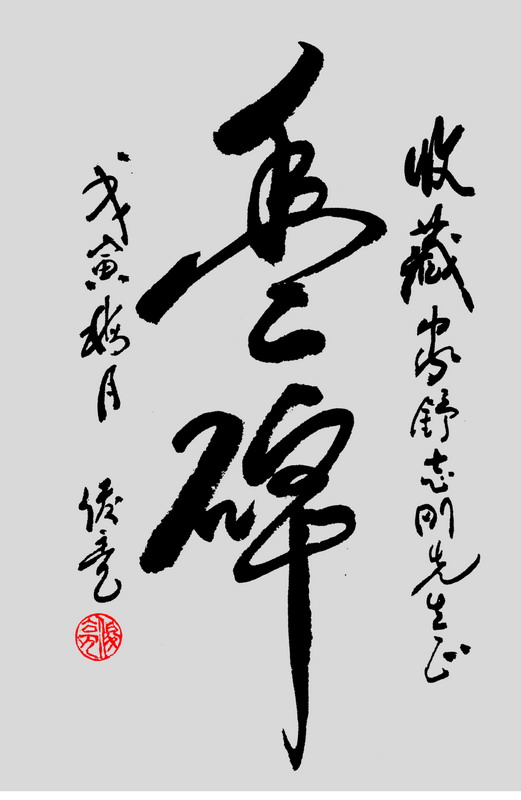 收藏家舒志刚先生正
豐碑
戊寅梅月 俊亮
俊亮